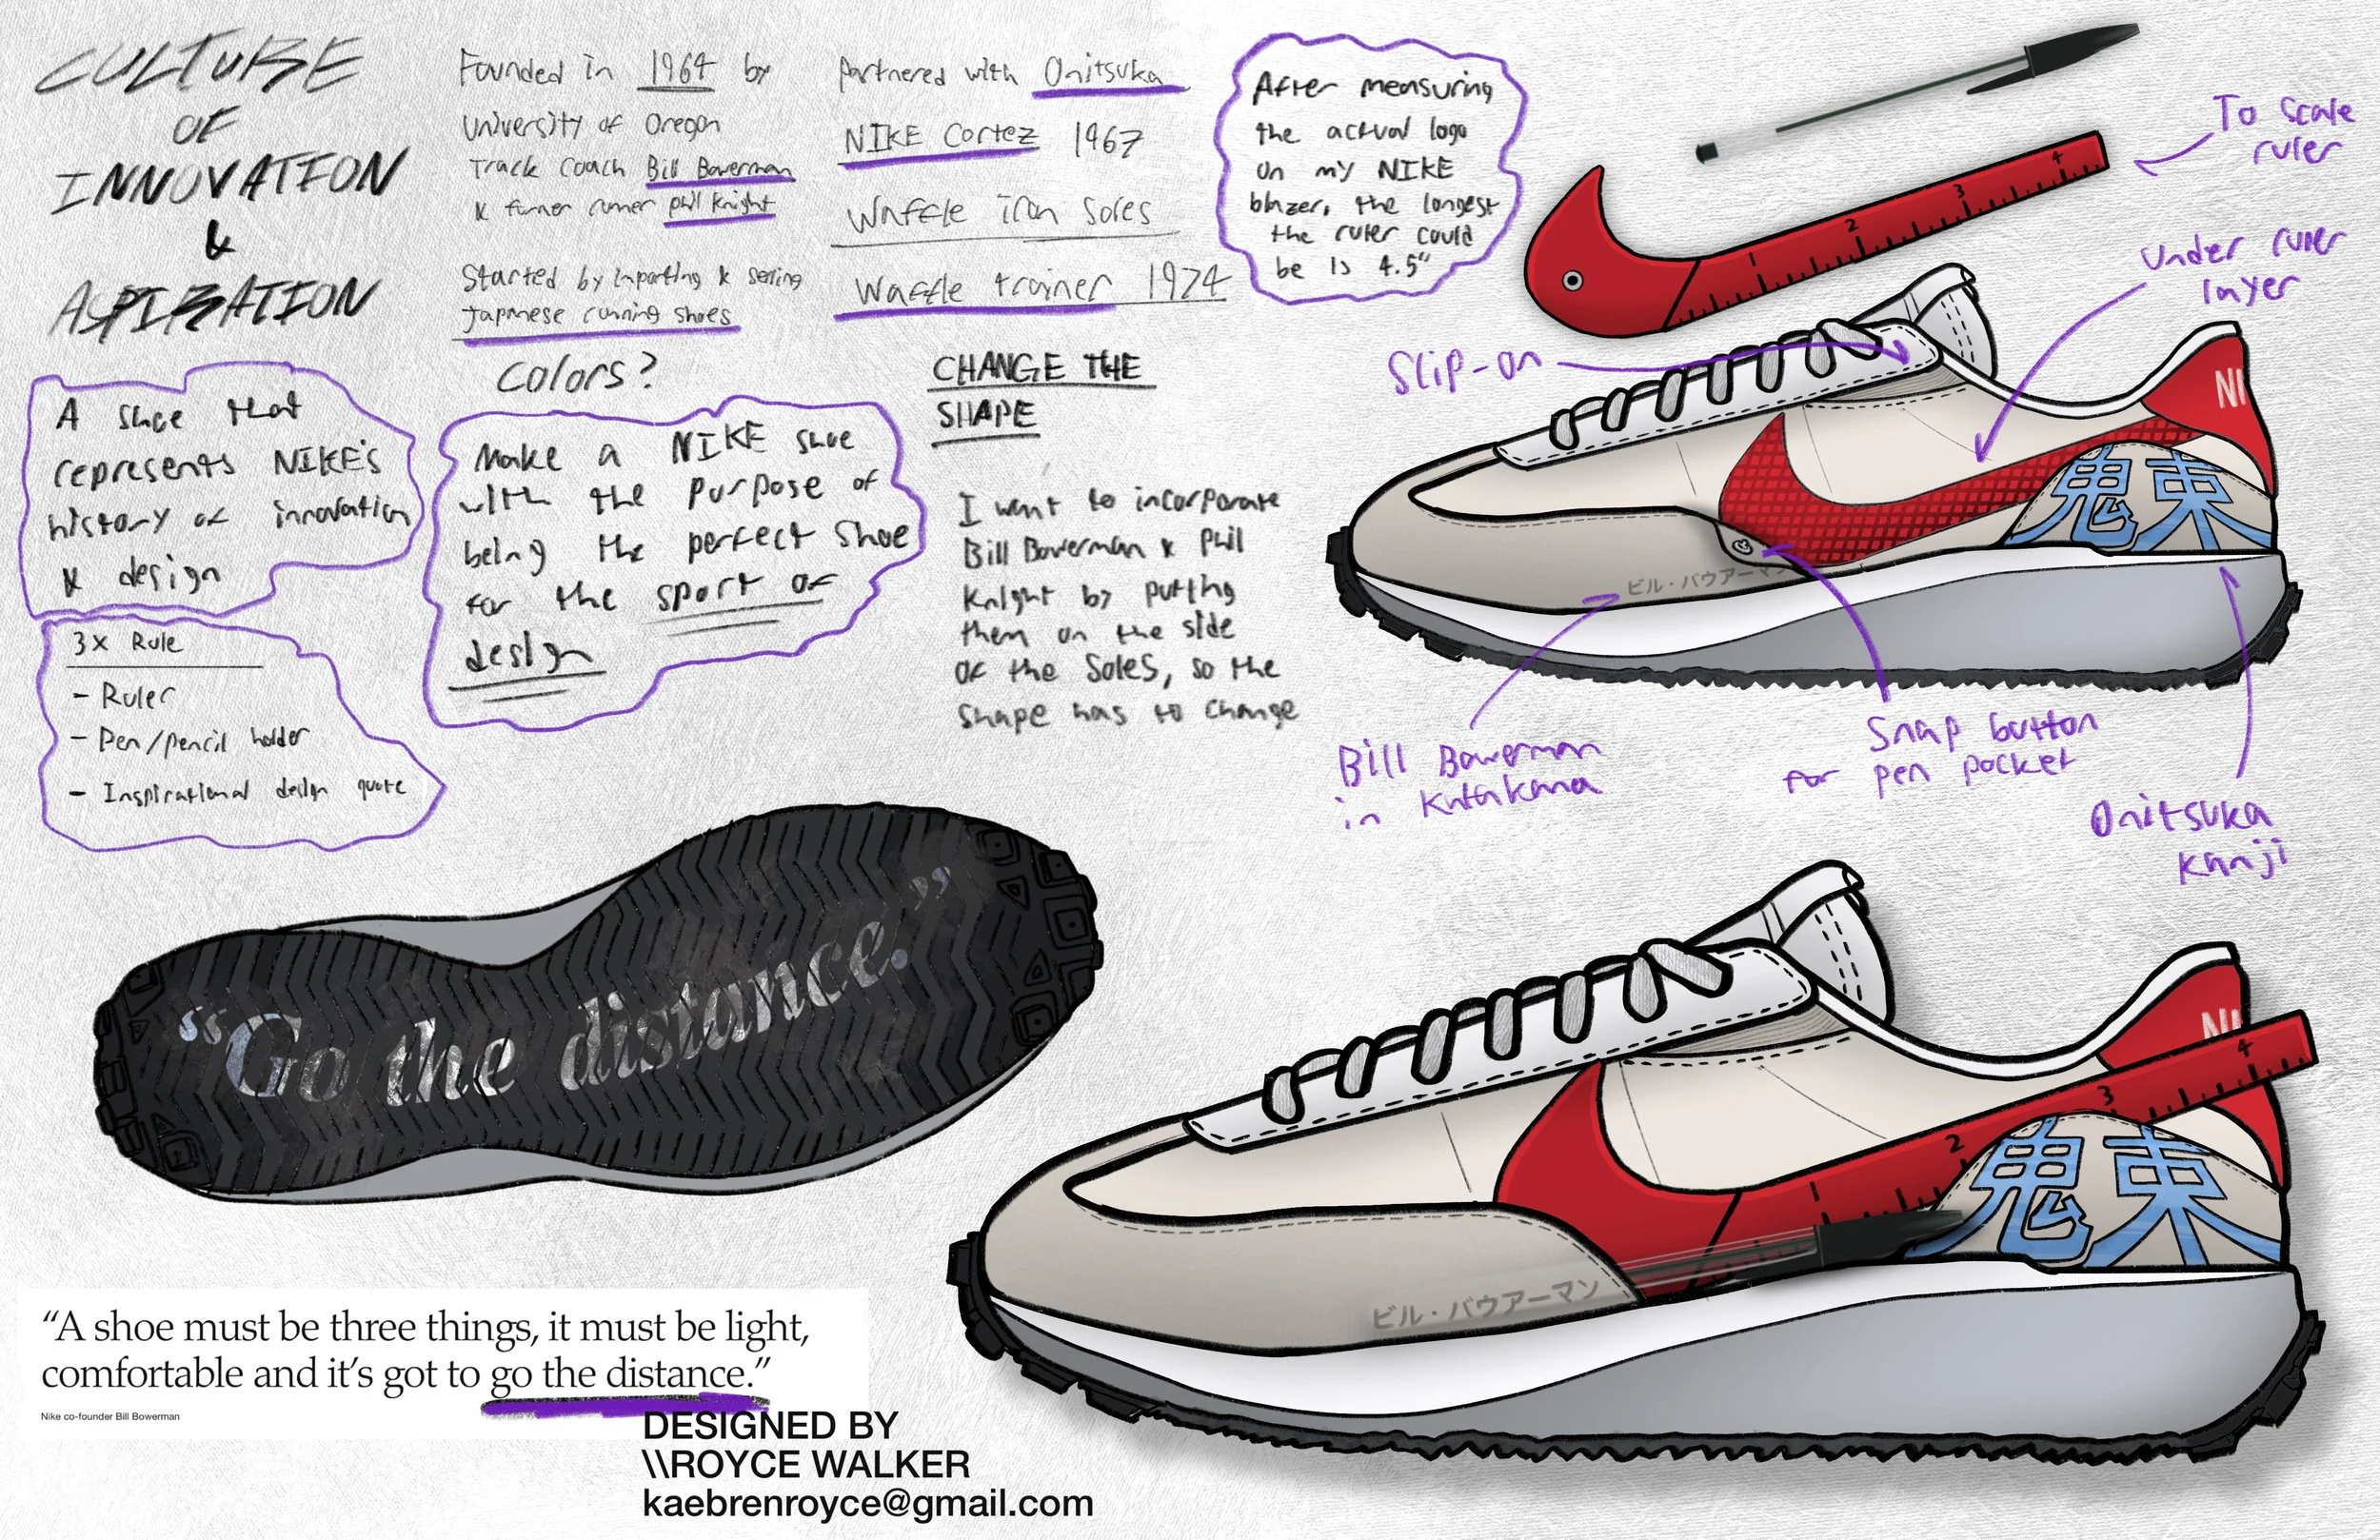 CULTURE
OF
INNOVATION
&
ASPIRATION
Founded in 1964 by
University of Oregon
Track Coach Bill Bowerman
& former runner Phil Knight
Started by importing & selling
Japanese running shoes
Partnered with Onitsuka
NIKE Cortez 1967
Waffle iron Soles
Waffle trainer 1974
After measuring
the actual logo
on my NIKE
blazer, the longest
the ruler could
be is 4.5"
To scale
ruler
1 2 3 4
Under ruler
layer
Slip-on
NI
鬼束
ビル・バウアーマン
Bill Bowerman
in Katakana
Snap button
for pen pocket
Onitsuka
Kanji
A shoe that
represents NIKE's
history of innovation
& design
3x Rule
- Ruler
- Pen/pencil holder
- Inspirational design quote
Colors?
Make a NIKE shoe
with the purpose of
being the perfect shoe
for the sport of
design
CHANGE THE
SHAPE
I want to incorporate
Bill Bowerman & Phil
Knight by putting
them on the side
of the Soles, so the
shape has to change
“Go the distance.”
NI
1 2 3 4
鬼束
ビル・バウアーマン
“A shoe must be three things, it must be light,
comfortable and it’s got to go the distance.”
Nike co-founder Bill Bowerman
DESIGNED BY
\\ROYCE WALKER
kaebrenroyce@gmail.com